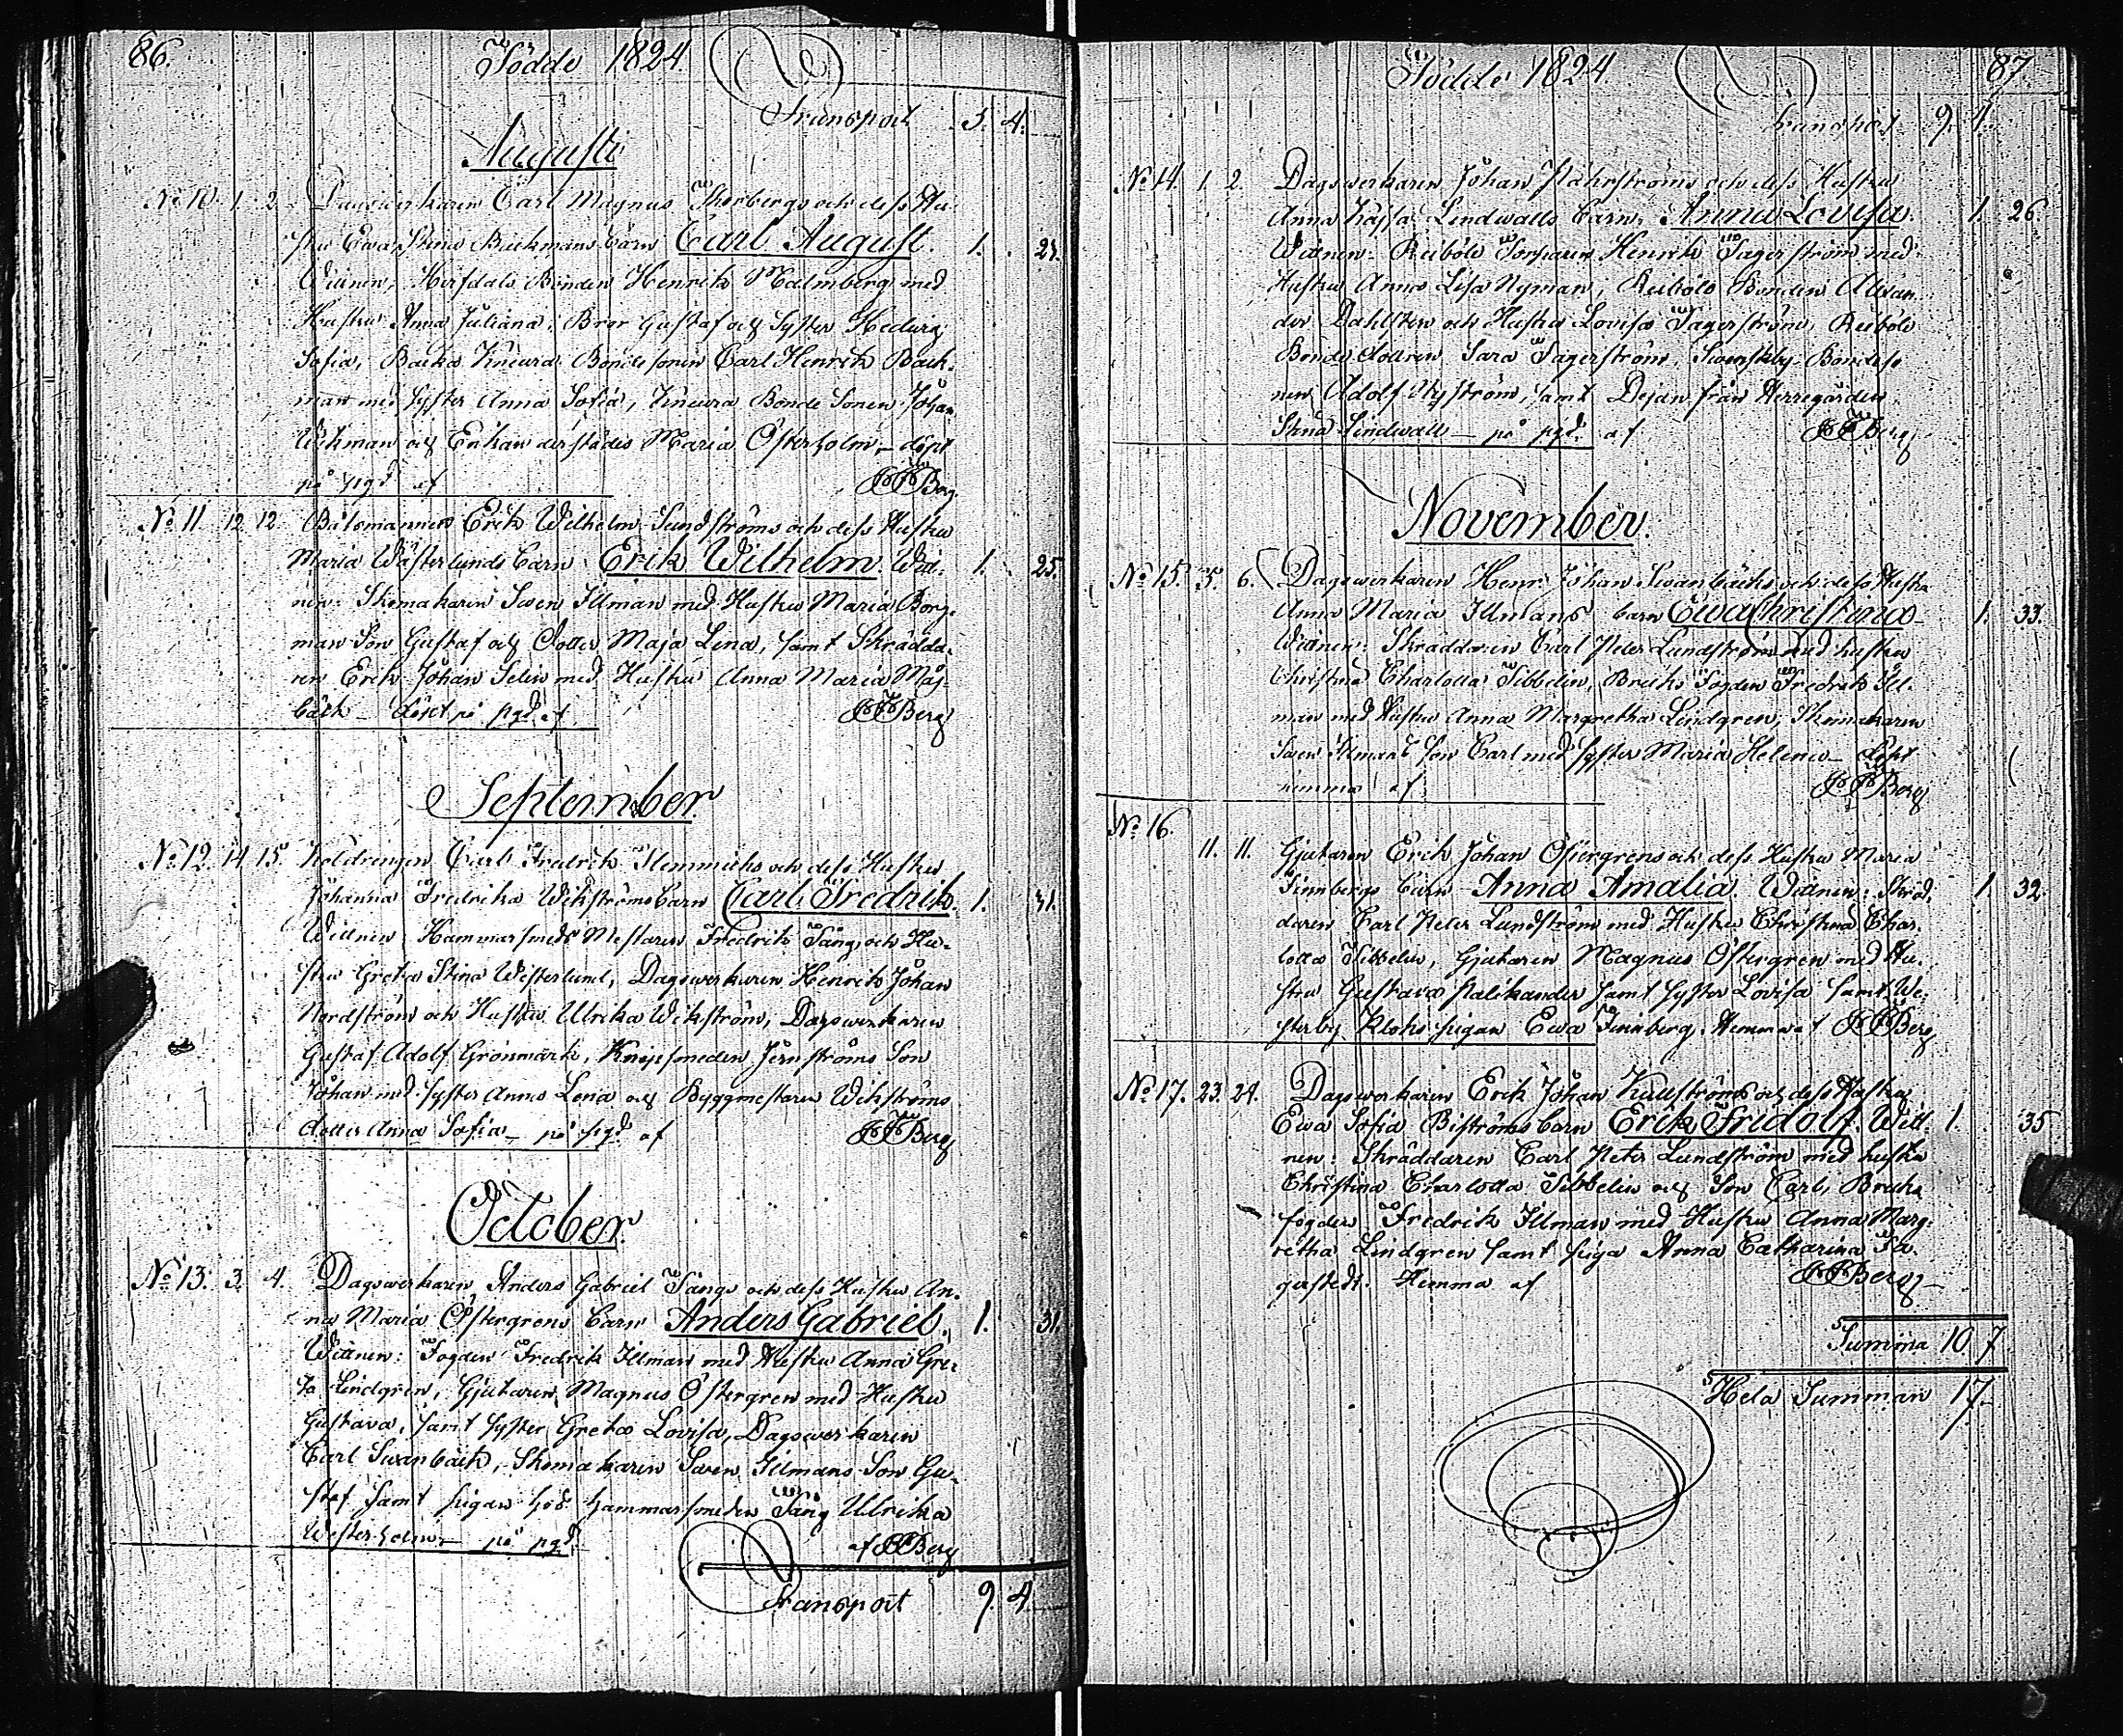 86.
Födde 1824
Transport 5. 4.
Augusti
No 10. 1. 2. Dagswerkaren Carl Magnus Skorbergs och dess Hu-
stru Ewa Stina Bäckmans barn Carl August. 1.
Wittnen, Bonden Henrik Malmberg med
Hustru Anna Juliana, Bror Gustaf och Syster Hedwig
Sofia, Backa Bondesonen Carl Henrik Bäck-
man med Syster Anna Sofia, Bonde Sonen Johan
Wikman och Enkan derstädes Maria Österholm, döpt
på pgd af JFBerg.
No 11. 12 12. Båtsmannen Erik Wilhelm Sundströms och dess Hustru
Maria Wästerlunds barn Erik Wilhelm. Witt- 1. 25.
nen: Skomakaren Swen Illman med Hustru Maria Borg-
man Son Gustaf och Dotter Maja Lena, samt Skrädda-
ren Erik Johan Selin med Hustru Anna Maria Måß-
bäck - döpt på pgd af JFBerg
September
No 12. 14 15. Koldrengen Carl Fredrik Flemmichs och dess Hustru
Johanna Fredrika Wikströms barn Carl Fredrik. 1. 31.
Wittnen: Hammarsmeds Mestaren Fredrik Täng och Hu-
stru Greta Stina Westerlund, Dagswerkaren Henrik Johan
Nordström och Hustru Ulrika Wikström, Dagswerkaren
Gustaf Adolf Grönmark, Knipsmeden Jernströms Son
Johan med Syster Anna Lena och Byggmestaren Wikströms
dotter Anna Sofia - på pgd af JFBerg
October
No 13. 3. 4. Dagswerkaren Anders Gabriel Tängs och dess Hustru An-
na Maria Östergrens barn Anders Gabriel. 1. 31.
Wittnen: Fogden Fredrik Illman med Hustru Anna Gre-
ta Lindgren, Gjutaren Magnus Östergren med Hustru
Gustava, samt Syster Greta Lovisa, Dagswerkaren
Carl Swanbäck, Skomakaren Swen Illmans Son Gu-
staf samt pigan hos hammarsmeden Täng Ulrika
Westerholm - på pgd. af JFBerg
Transport 9. 4.
87.
Födde 1824
Transport 9. 4.
No 14. 1. 2. Dagswerkaren Johan Påhrströms och dess Hustru
Anna Kajsa Lindwalls barn. Anna Lovisa. 1. 26.
Wittnen. Reiböle Torparen Henrik Fagerström med
Hustru Anna Lisa Nyman, Reiböle Bonden Alexan-
der Dahlsten och Hustru Lovisa Fagerström, Reiböle
Bonde dottren Sara Fagerström, Swenskby Bondeso
nen Adolf Nyström, samt Dejan från Herregården
Stina Lindwall - på pgd. af JFBerg
November.
No 15. 5. 6. Dagswerkaren Henr. Johan Swanbäcks och dess Hustru
Anna Maria Illmans barn Ewa Christina 1. 33.
Wittnen: Skräddaren Carl Peter Lundström med hustru
Christina Charlotta Sibbelin, Bruks Fogden Fredrik Ill-
man med Hustru Anna Margretha Lindgren, Skomakaren
Swen Illmans Son Carl med Syster Maria Helena - döpt
hemma af JFBerg
No 16.
11. 11. Gjutaren Erik Johan Östergrens och dess Hustru Maria
Finnbergs barn Anna Amalia. Wittnen: Skräd- 1. 32.
daren Carl Peter Lundström med Hustru Christina Char-
lotta Sibbelin, Gjutaren Magnus Östergren med Hu-
stru Gustava Palikander samt Syster Lovisa samt We-
sterby Kloks pigan Ewa Finnberg. Hemma af JFBerg
No 17. 23. 24. Dagswerkaren Erik Johan Kullströms och dess Hustru
Ewa Sofia Biströms barn Erik Fridolf. Witt- 1. 35
nen: Skräddaren Carl Peter Lundström med hustru
Christina Charlotta Sibbelin och Son Carl, Bruks
fogden Fredrik Illman med Hustru Anna Marg-
retha Lindgren samt piga Anna Catharina Fa-
gerstedt. Hemma af JFBerg
Summa 10 7
Hela Summan 17.